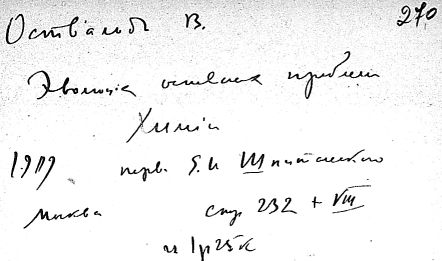 Оствальдъ В. 270
Эволюція основныхъ проблемъ
Химіи
1909 перв. Е. И Шпитальского
Москва стр 232 + VIII
ц 1р 25к